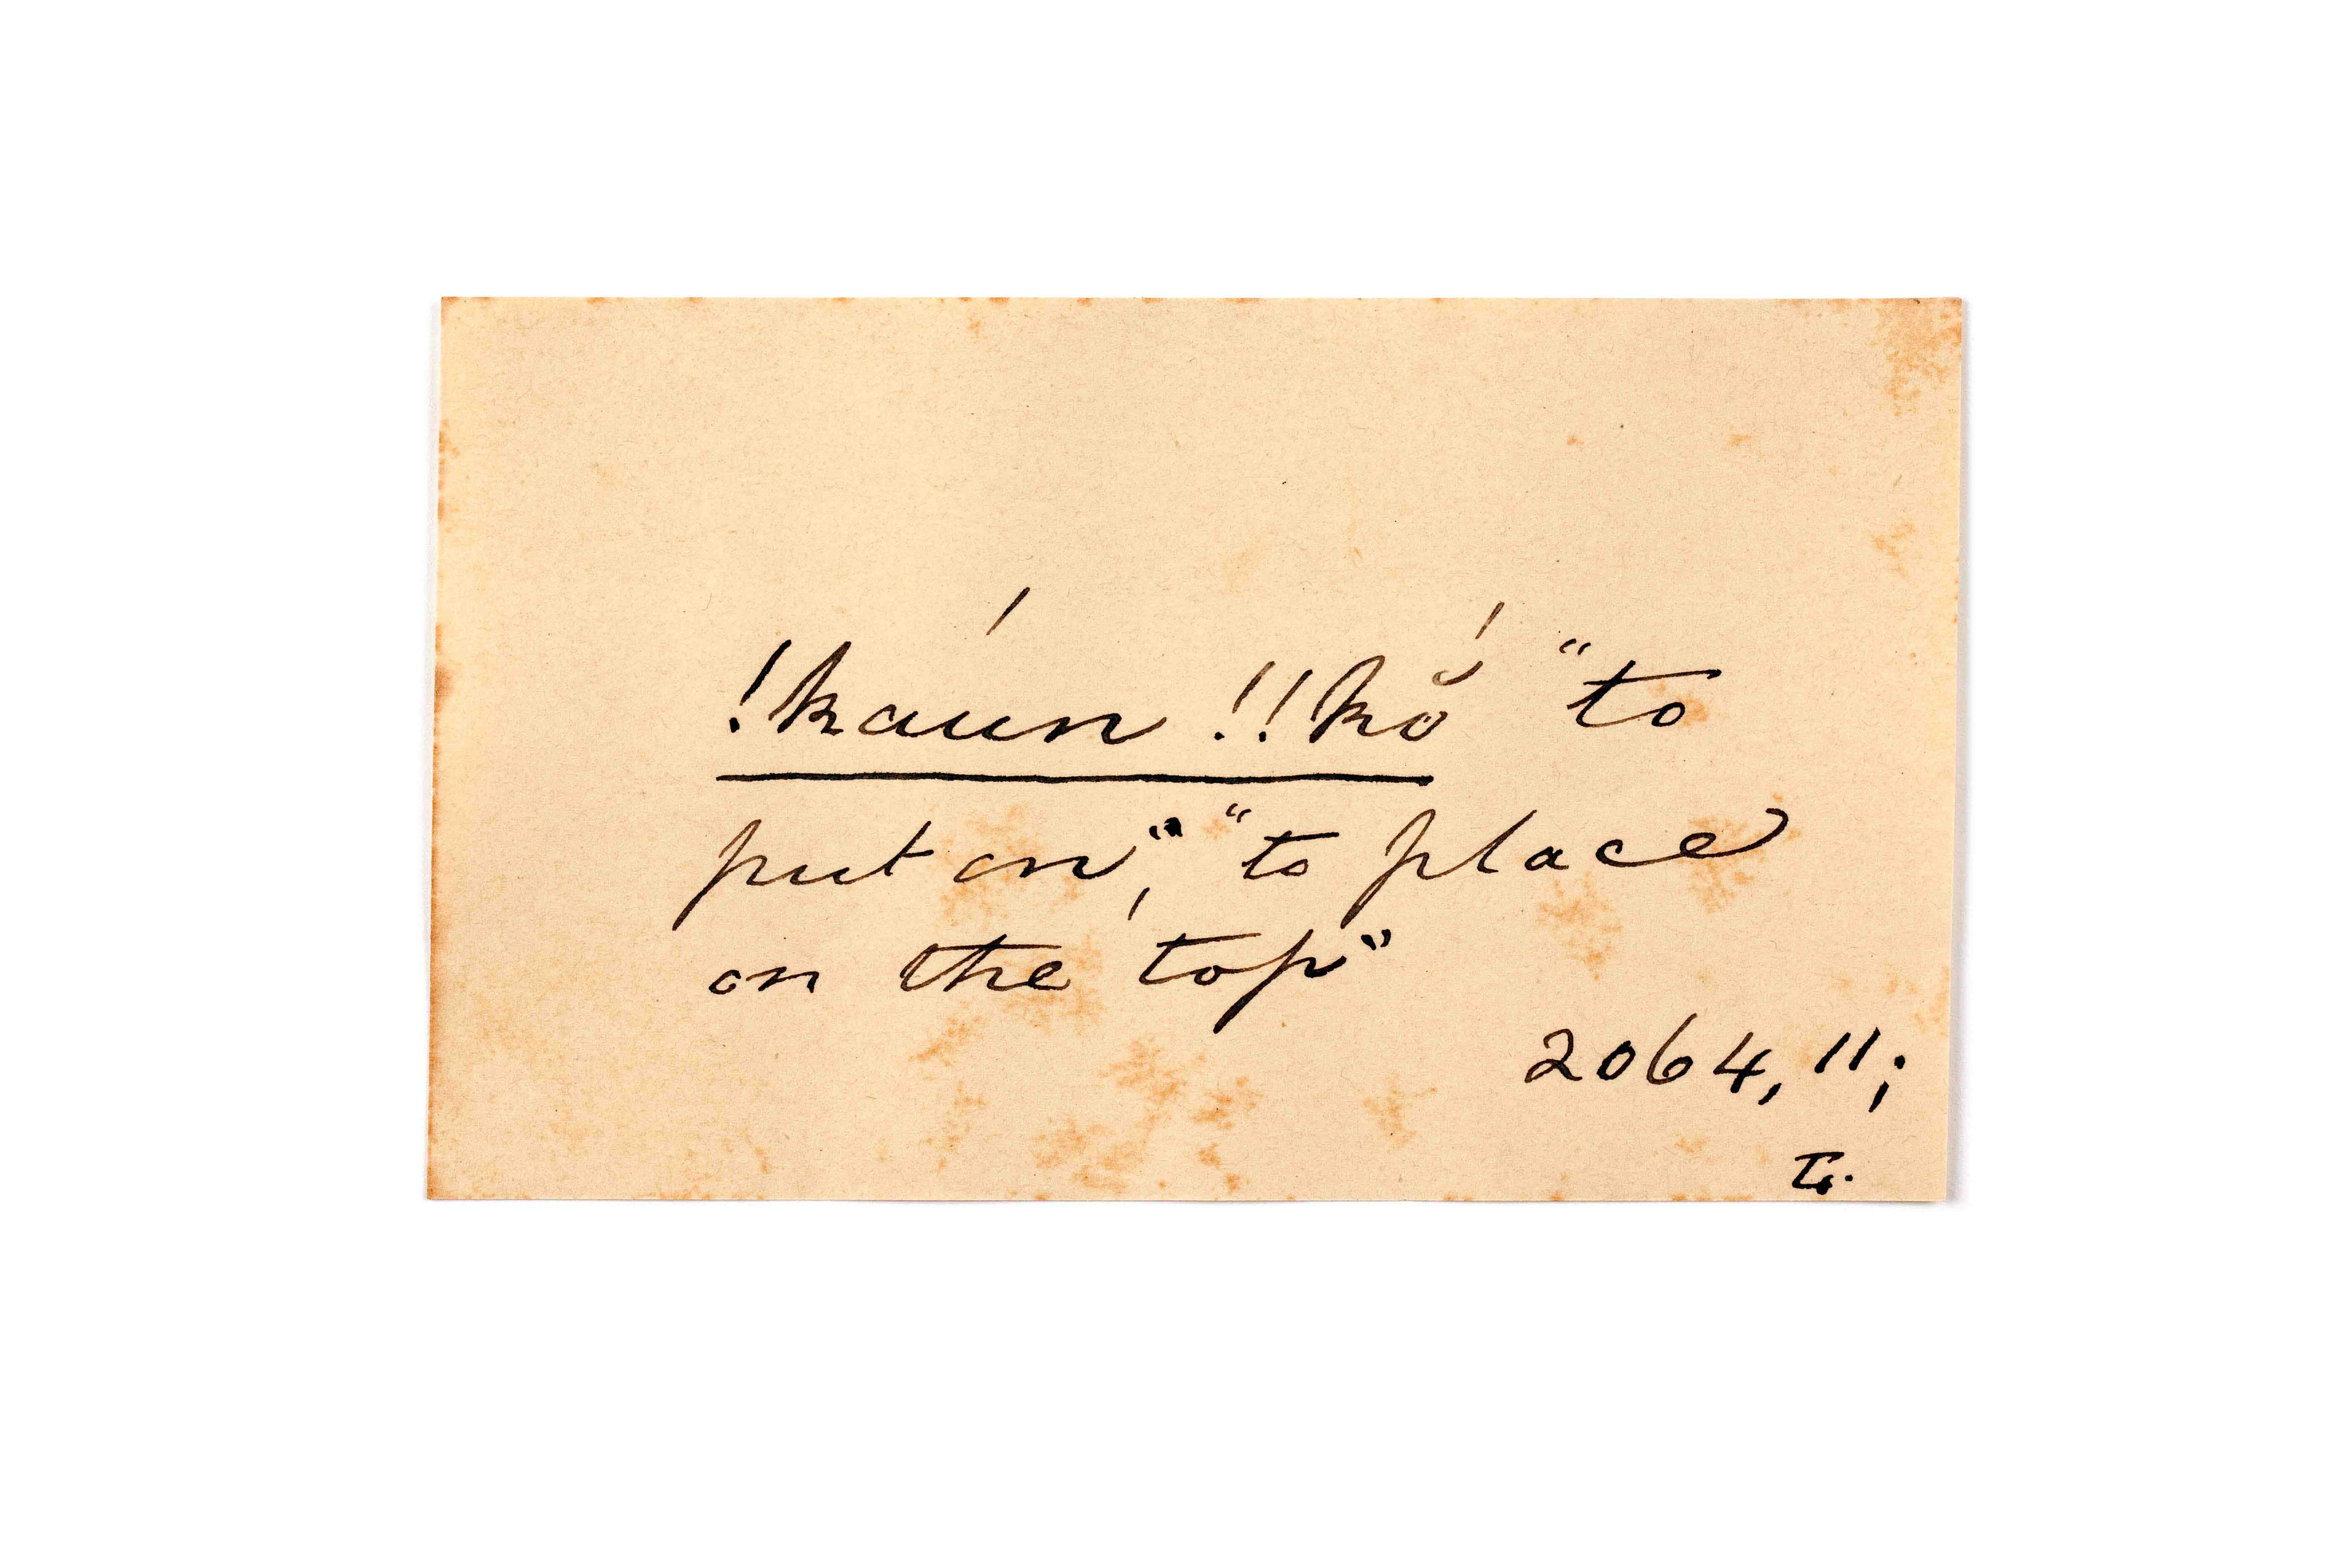 !kaún !!kŏ́ "to
put on", "to place
on the top"
2064, 11;